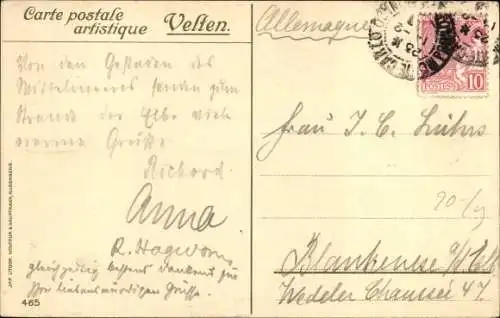 Carte postale
artistique
Velten.
Allemagne
MONTE CARLO
10
POSTES
Von den Gestaden des
Mittelmeeres senden zum
Strande der Elbe viele
warme Grüße
Richard
Anna
R. Hagworn
gleichzeitig bestens dankend für
Ihre liebenswürdigen Grüsse.
465
Frau J. C. Lührs
Blankenese a/ Elbe
Wedeler Chaussée 47.